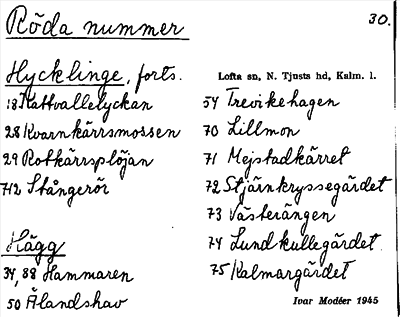 Röda nummer
30.
Hycklinge, forts.
18 Kattvallelyckan
28 Kvarnkärrsmossen
29 Rotkärrsplöjan
712 Stångerör
Hägg
34, 88 Hammaren
50 Ålandshav
Lofta sn, N. Tjusts hd, Kalm. l.
54 Trevikehagen
70 Lillmon
71 Mejstadkärret
72 Stjärnkryssegärdet
73 Västerängen
74 Lundkullegärdet
75 Kalmargärdet
Ivar Modéer 1945